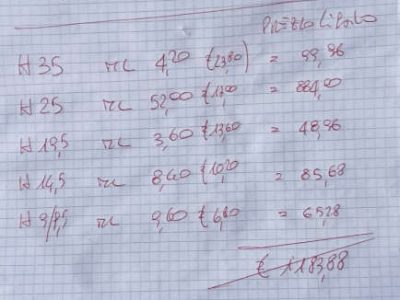 Prezzo Listino
H 35 ML 4,20 (€23,80) = 99,96
H 25 ML 52,00 €17,00 = 884,00
H 19,5 ML 3,60 €13,60 = 48,96
H 14,5 ML 8,40 €10,20 = 85,68
H 9/9,5 ML 9,60 €6,80 = 65,28
€ 1183,88